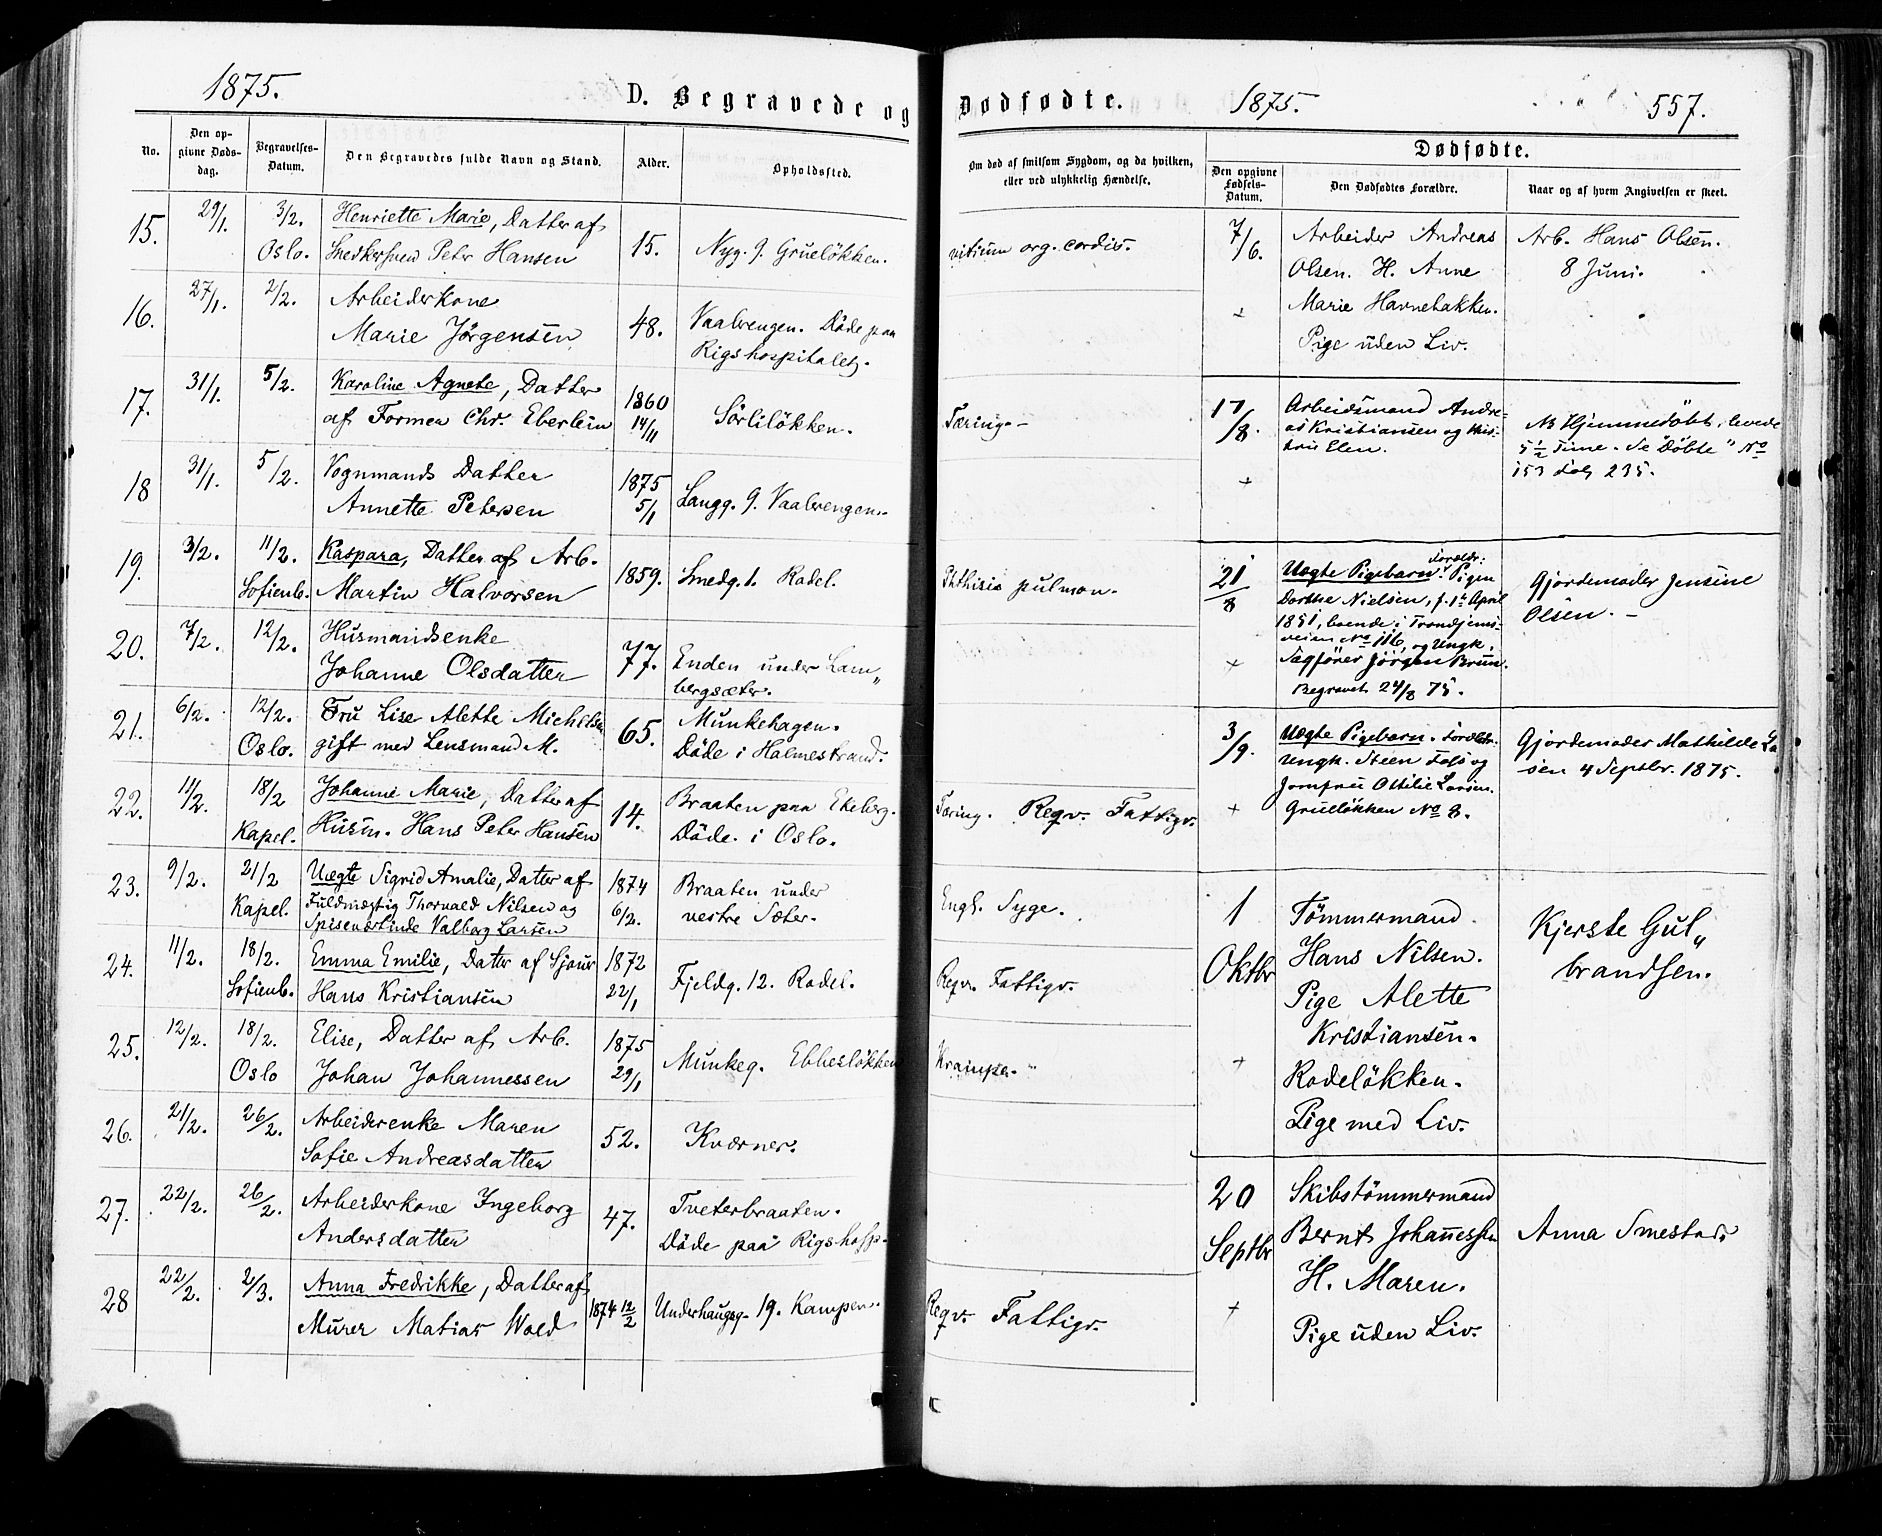 1875.
D. Begravede og
No.
Den op-
givne Døds-
dag.
Begravelses-
Datum.
Den Begravedes fulde Navn og Stand.
Alder.
Opholdssted.
15.
29/1.
3/2.
Oslo.
Henriette Marie, Datter af
Snedkersvend Peter Hansen
15.
Nyg. 9. Grueløkken.
16.
27/1.
2/2.
Arbeiderkone
Marie Jørgensen
48.
Vaalerengen. Døde paa
Rigshospitalet.
17.
31/1.
5/2.
Karoline Agnete, Datter
af Former Chr. Eberlein
1860
14/11
Sørliløkken.
18
31/1.
5/2.
Vognmands Datter
Annette Petersen
1875
5/1
Langg. 9. Vaalerengen.
19.
3/2.
11/2.
Sofienb.
Kaspara, Datter af Arb.
Martin Halvorsen
1859.
Smedg. 1. Rodel.
20.
7/2.
12/2.
Husmandsenke
Johanne Olsdatter
77.
Enden under Lam„
bergsæter.
21.
6/2.
12/2.
Oslo.
Fru Lise Alette Michelsen
gift med Lensmand M.
65.
Munkehagen.
Døde i Holmestrand.
22.
11/2.
18/2
Kapel.
Johanne Marie, Datter af
Husm. Hans Peter Hansen
14.
Braaten paa Ekeberg.
Døde i Oslo.
23.
9/2.
21/2
Kapel.
Uægte Sigrid Amalie, Datter af
Fuldmægtig Thorvald Nilsen og
Spiseværtinde Valborg Larsen
1874
6/2.
Braaten under
vestre Sæter.
24.
11/2.
18/2.
Sofienb.
Emma Emilie, Datter af Sjouer
Hans Kristiansen
1872
22/1
Fjeldg. 12. Rodel.
25.
12/2.
18/2.
Oslo
Elise, Datter af Arb.
Johan Johannessen
1875
29/1
Munkeg. Ebbesløkken
26.
21/2.
26/2.
Arbeiderenke Maren
Sofie Andreasdatter
52.
Kværner.
27.
22/2.
26/2.
Arbeiderkone Ingeborg
Andersdatter
47.
Tveterbraaten.
Døde paa Rigshosp.
28
22/2.
2/3.
Anna Fredrikke, Datter af
Murer Matias Wold
1874 12/2
Underhaugsg. 19. Kampen.
Dødfødte.
1875.
557.
Om død af smitsom Sygdom, og da hvilken,
eller ved ulykkelig Hændelse.
Dødfødte.
Den opgivne
Fødsels-
Datum.
Den Dødfødtes Forældre.
Naar og af hvem Angivelsen er skeet.
vitium org. cordis.
Tæring. –
Phthisis pulmon.
Tæring. Reqv. Fattigv.
Engl. Syge.
Reqv. Fattigv.
Krampe.
Reqv. Fattigv.
7/6.
+
Arbeider Andreas
Olsen. H. Anne
Marie Havnebakken.
Pige uden Liv.
Arb. Hans Olsen.
8 Juni.
17/8.
+
Arbeidsmand Andre-
as Kristiansen og Hus-
tru Elen.
NB Hjemmedøbt, levede
5 1/2 Time. Se "Døbte" No
153 Fol. 235.
21/8
+
Uægte Pigebarn. Forældr:
Pigen
Dorthe Nielsen, f. 1ste April
1851, boende i Trondjems-
veien No 116, og Ungk,
Tægfører Jörgen Brun.
Begravet 24/8 75.
Gjordemoder Jensine
Olsen. –
3/9.
+
Uægte Pigebarn. Forældr:
Ungk. Steen Foss og
Jomfru Ottilie Larsen.
Grueløkken No 8.
Gjordemoder Mathilde La
sen 4 Septbr. 1875.
1
Oktbr
+
Tømmermand
Hans Nilsen.
Pige Alette
Kristiansen.
Rodeløkken.
Pige med Liv.
Kjerste Gul„
brandsen.
20
Septbr
+
Skibstømmermand
Bernt Johannessen
H. Maren.
Pige uden Liv.
Anna Smestad.